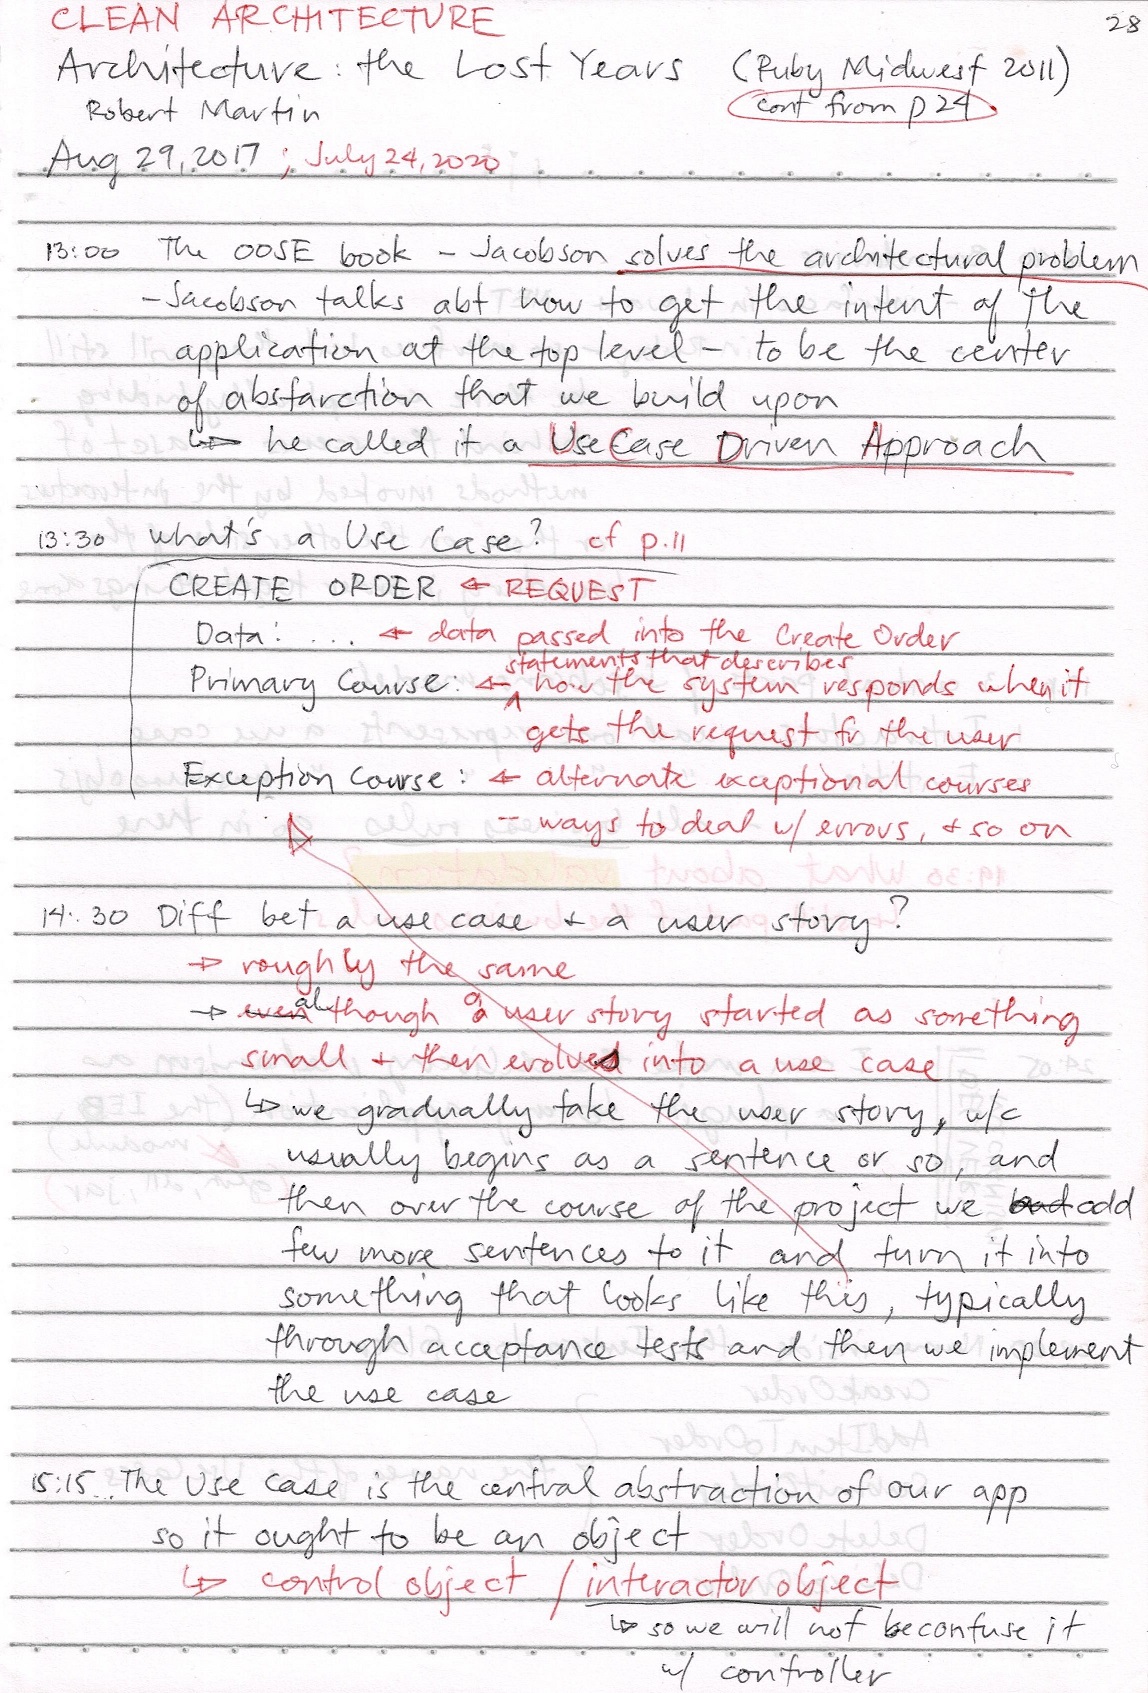 CLEAN ARCHITECTURE
28
Architecture: the Lost Years (Ruby Midwest 2011)
Robert Martin cont from p24
Aug 29, 2017 ; July 24, 2020
13:00 The OOSE book - Jacobson solves the architectural problem
- Jacobson talks abt how to get the intent of the
application at the top level - to be the center
of abstarction that we build upon
↳ he called it a Use Case Driven Approach
13:30 what's a Use Case? cf p.11
CREATE ORDER ← REQUEST
Data: ... ← data passed into the Create Order
statements that describes
Primary Course: ← how the system responds when it
gets the request fr the user
Exception Course: ← alternate exceptional courses
-- ways to deal w/ errors, & so on
14:30 Diff bet a use case & a user story?
→ roughly the same
→ even although a user story started as something
small & then evolved into a use case
↳ we gradually take the user story, w/c
usually begins as a sentence or so, and
then over the course of the project we add
few more sentences to it and turn it into
something that looks like this, typically
through acceptance tests and then we implement
the use case
15:15 The Use Case is the central abstraction of our app
so it ought to be an object
↳ control object / interactor object
↳ so we will not be confuse it
w/ controller